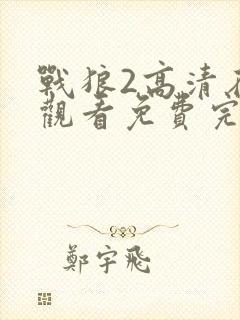 戰狼2高清
觀看免費完
鄭宇飛